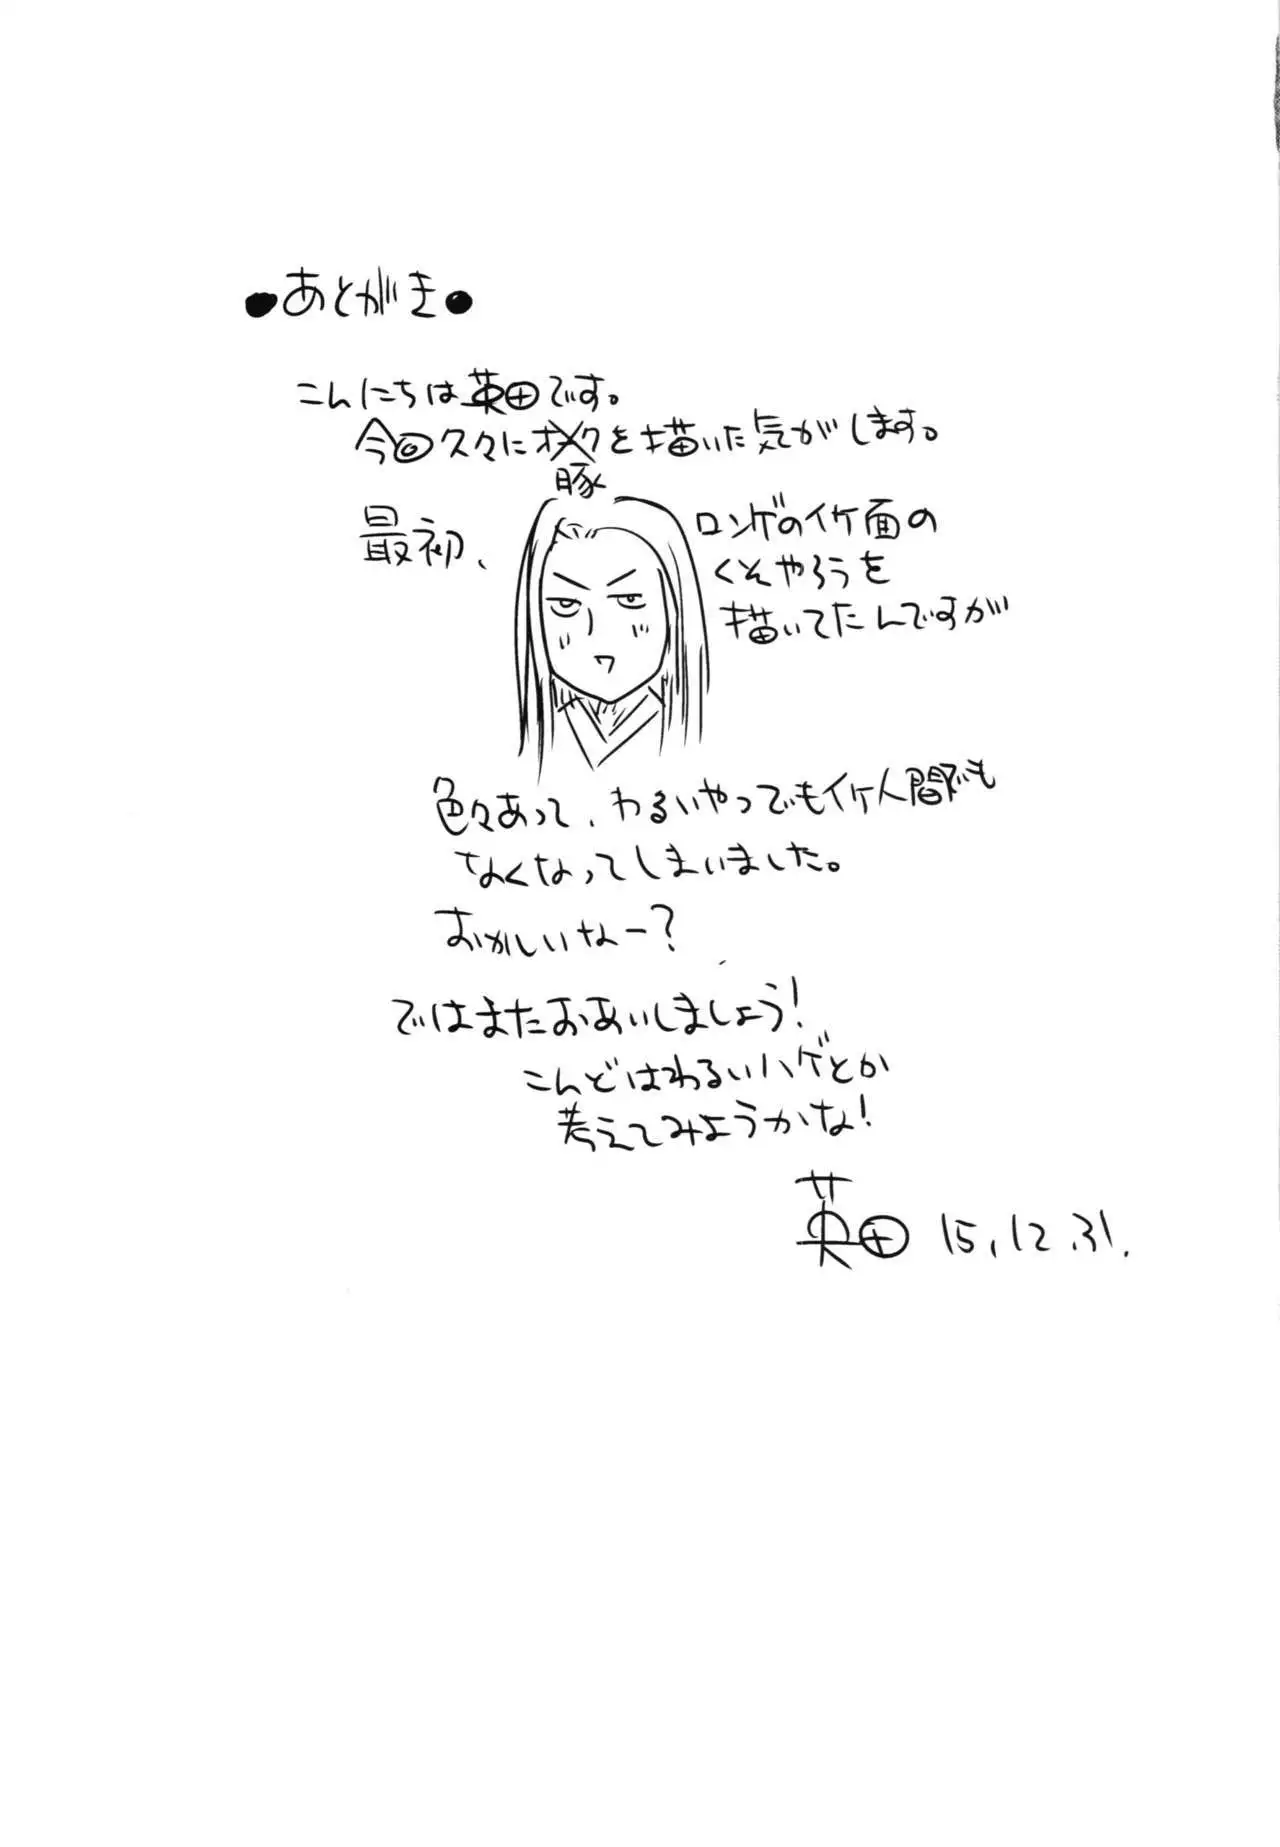 ●あとがき●
こんにちは英田です。
今回久々にオークを描いた気がします。
豚
最初、
ロンゲのイケ面の
くそやろうを
描いてたんですが
色々あって、わるいやつでもイケ人間でも
なくなってしまいました。
おかしいなー?
ではまたおあいしましょう!
こんどはわるいハゲとか
考えてみようかな!
英田 15.12.31.